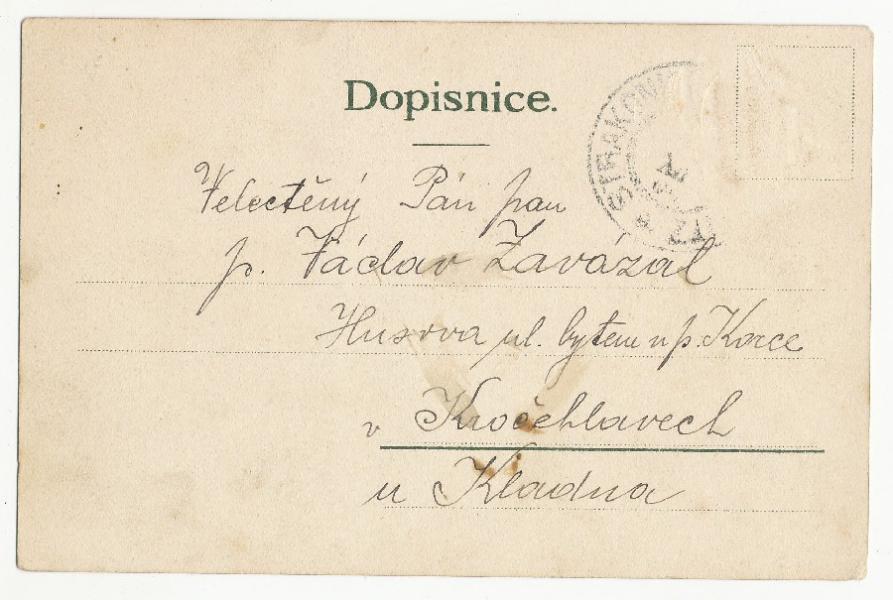 Dopisnice.
STRAKONI
Velectěný Pán pan
p. Václav Zavázal
Husova ul. bytem u p. Korce
v Kročehlavech
u Kladna